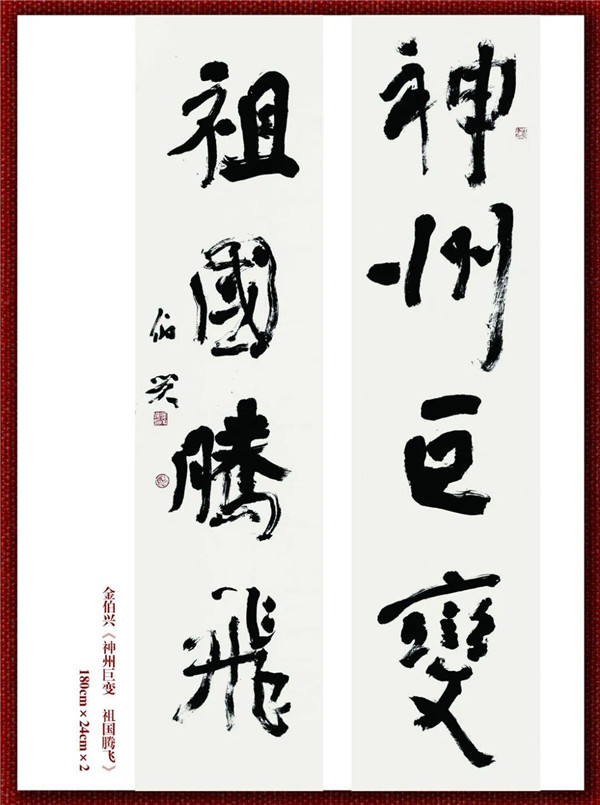 神州巨變
祖國騰飛
伯兴
金伯兴《神州巨变　祖国腾飞》
180cm×24cm×2